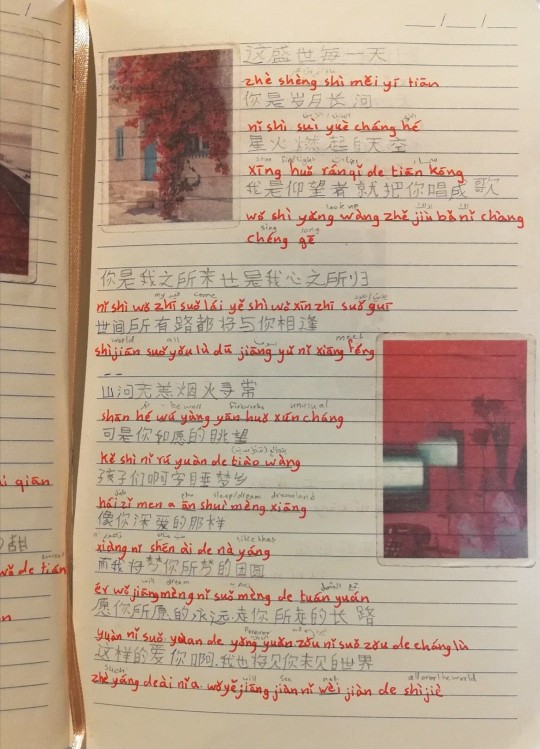 i qiān
甜
wǒ de tián
n
这盛世每一天
zhè shèng shì měi yī tiān
你是岁月长河
nǐ shì suì yuè cháng hé
星火燃起的天空
star fire/light
xīng huǒ rán qǐ de tiān kōng
我是仰望者就把你唱成歌
look up
wǒ shì yǎng wàng zhě jiù bǎ nǐ chàng
sing song
chéng gē
你是我之所来也是我心之所归
my come
nǐ shì wǒ zhī suǒ lái yě shì wǒ xīn zhī suǒ guī
世间所有路都将与你相逢
world all meet
shìjiān suǒ yǒu lù dū jiāng yǔ nǐ xiāng féng
--
山河无恙烟火寻常
be well fireworks unusual
shān hé wú yàng yān huǒ xún cháng
可是你如愿的眺望
kě shì nǐ rú yuàn de tiào wàng
孩子们啊安睡梦乡
sleep/dream dreamland
hái zǐ men a ān shuì mèng xiāng
像你深爱的那样
like that
xiàng nǐ shēn ài de nà yáng
而我将梦你所梦的团圆
will dream
ér wǒ jiāng mèng nǐ suǒ mèng de tuán yuán
愿你所愿的永远走你所走的长路
Forever
yuàn nǐ suǒ yuàn de yǒng yuǎn zǒu nǐ suǒ zǒu de cháng lù
这样的爱你啊 我也将见你未见的世界
such will see all over the world
zhè yáng de ài nǐ a wǒ yě jiāng jiàn nǐ wèi jiàn de shì jiè